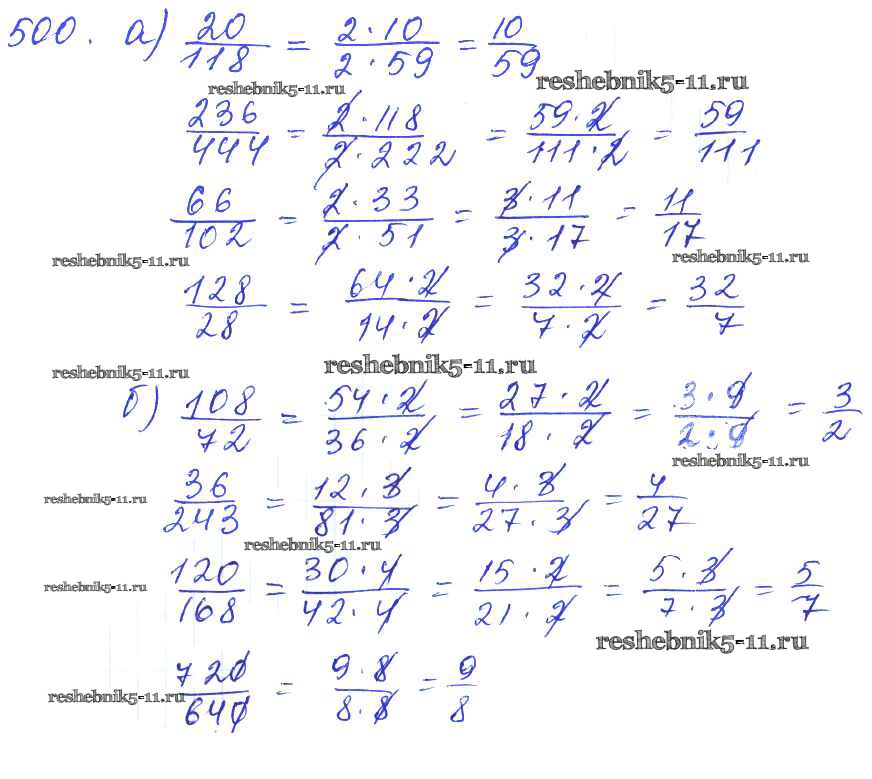 500. а) 20/118 = 2·10/2·59 = 10/59
reshebnik5-11.ru reshebnik5-11.ru
236/444 = 2·118/2·222 = 59·2/111·2 = 59/111
66/102 = 2·33/2·51 = 3·11/3·17 = 11/17
reshebnik5-11.ru reshebnik5-11.ru
128/28 = 64·2/14·2 = 32·2/7·2 = 32/7
reshebnik5-11.ru reshebnik5-11.ru
б) 108/72 = 54·2/36·2 = 27·2/18·2 = 3·9/2·9 = 3/2
reshebnik5-11.ru
reshebnik5-11.ru 36/243 = 12·3/81·3 = 4·3/27·3 = 4/27
reshebnik5-11.ru
reshebnik5-11.ru 120/168 = 30·4/42·4 = 15·2/21·2 = 5·3/7·3 = 5/7
reshebnik5-11.ru
720/640 = 9·8/8·8 = 9/8
reshebnik5-11.ru